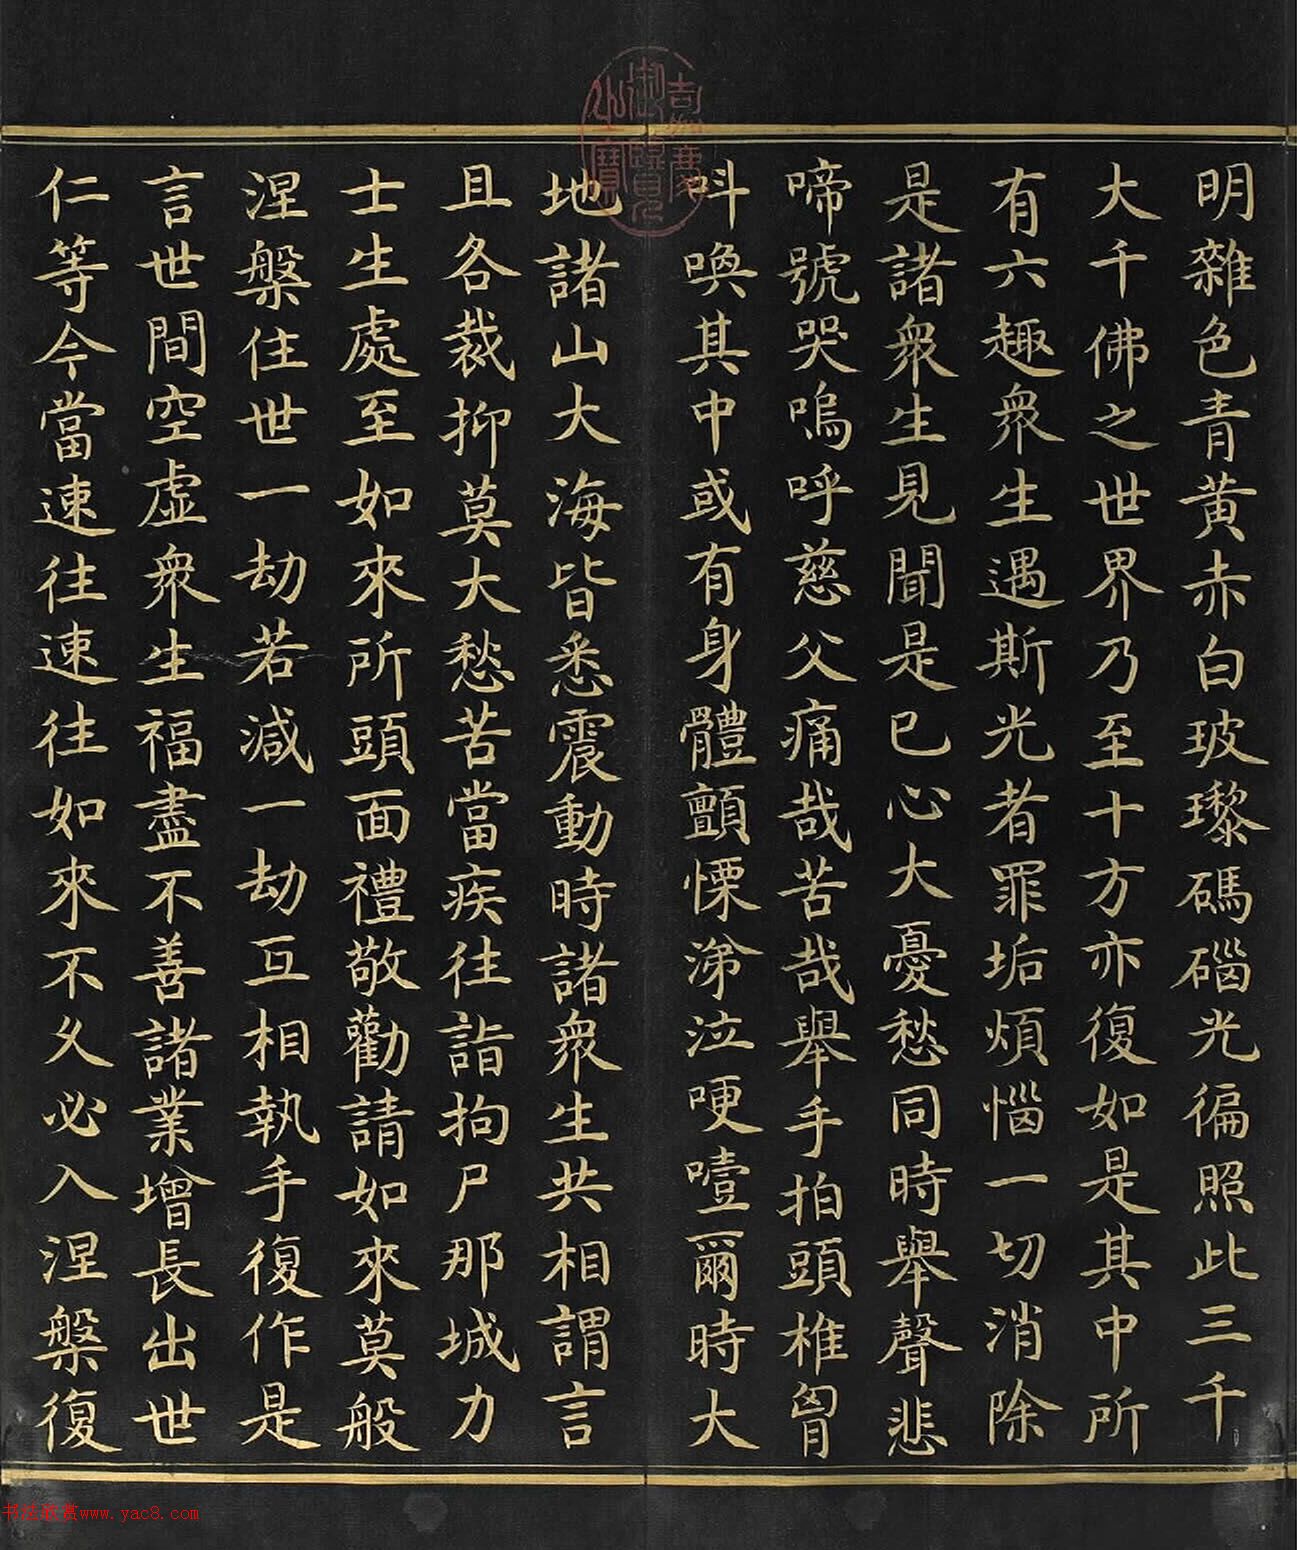 明雜色青黄赤白玻瓈碼碯光徧照此三千
大千佛之世界乃至十方亦復如是其中所
有六趣衆生遇斯光者罪垢煩惱一切消除
是諸衆生見聞是已心大憂愁同時舉聲悲
啼號哭嗚呼慈父痛哉苦哉舉手拍頭椎胷
呌喚其中或有身體顫慄涕泣哽噎爾時大
地諸山大海皆悉震動時諸衆生共相謂言
且各裁抑莫大愁苦當疾往詣拘尸那城力
士生處至如來所頭面禮敬勸請如來莫般
涅槃住世一劫若減一劫互相執手復作是
言世間空虛衆生福盡不善諸業增長出世
仁等今當速往速往如來不久必入涅槃復
嘉慶御覽之寶
书法欣赏www.yac8.com